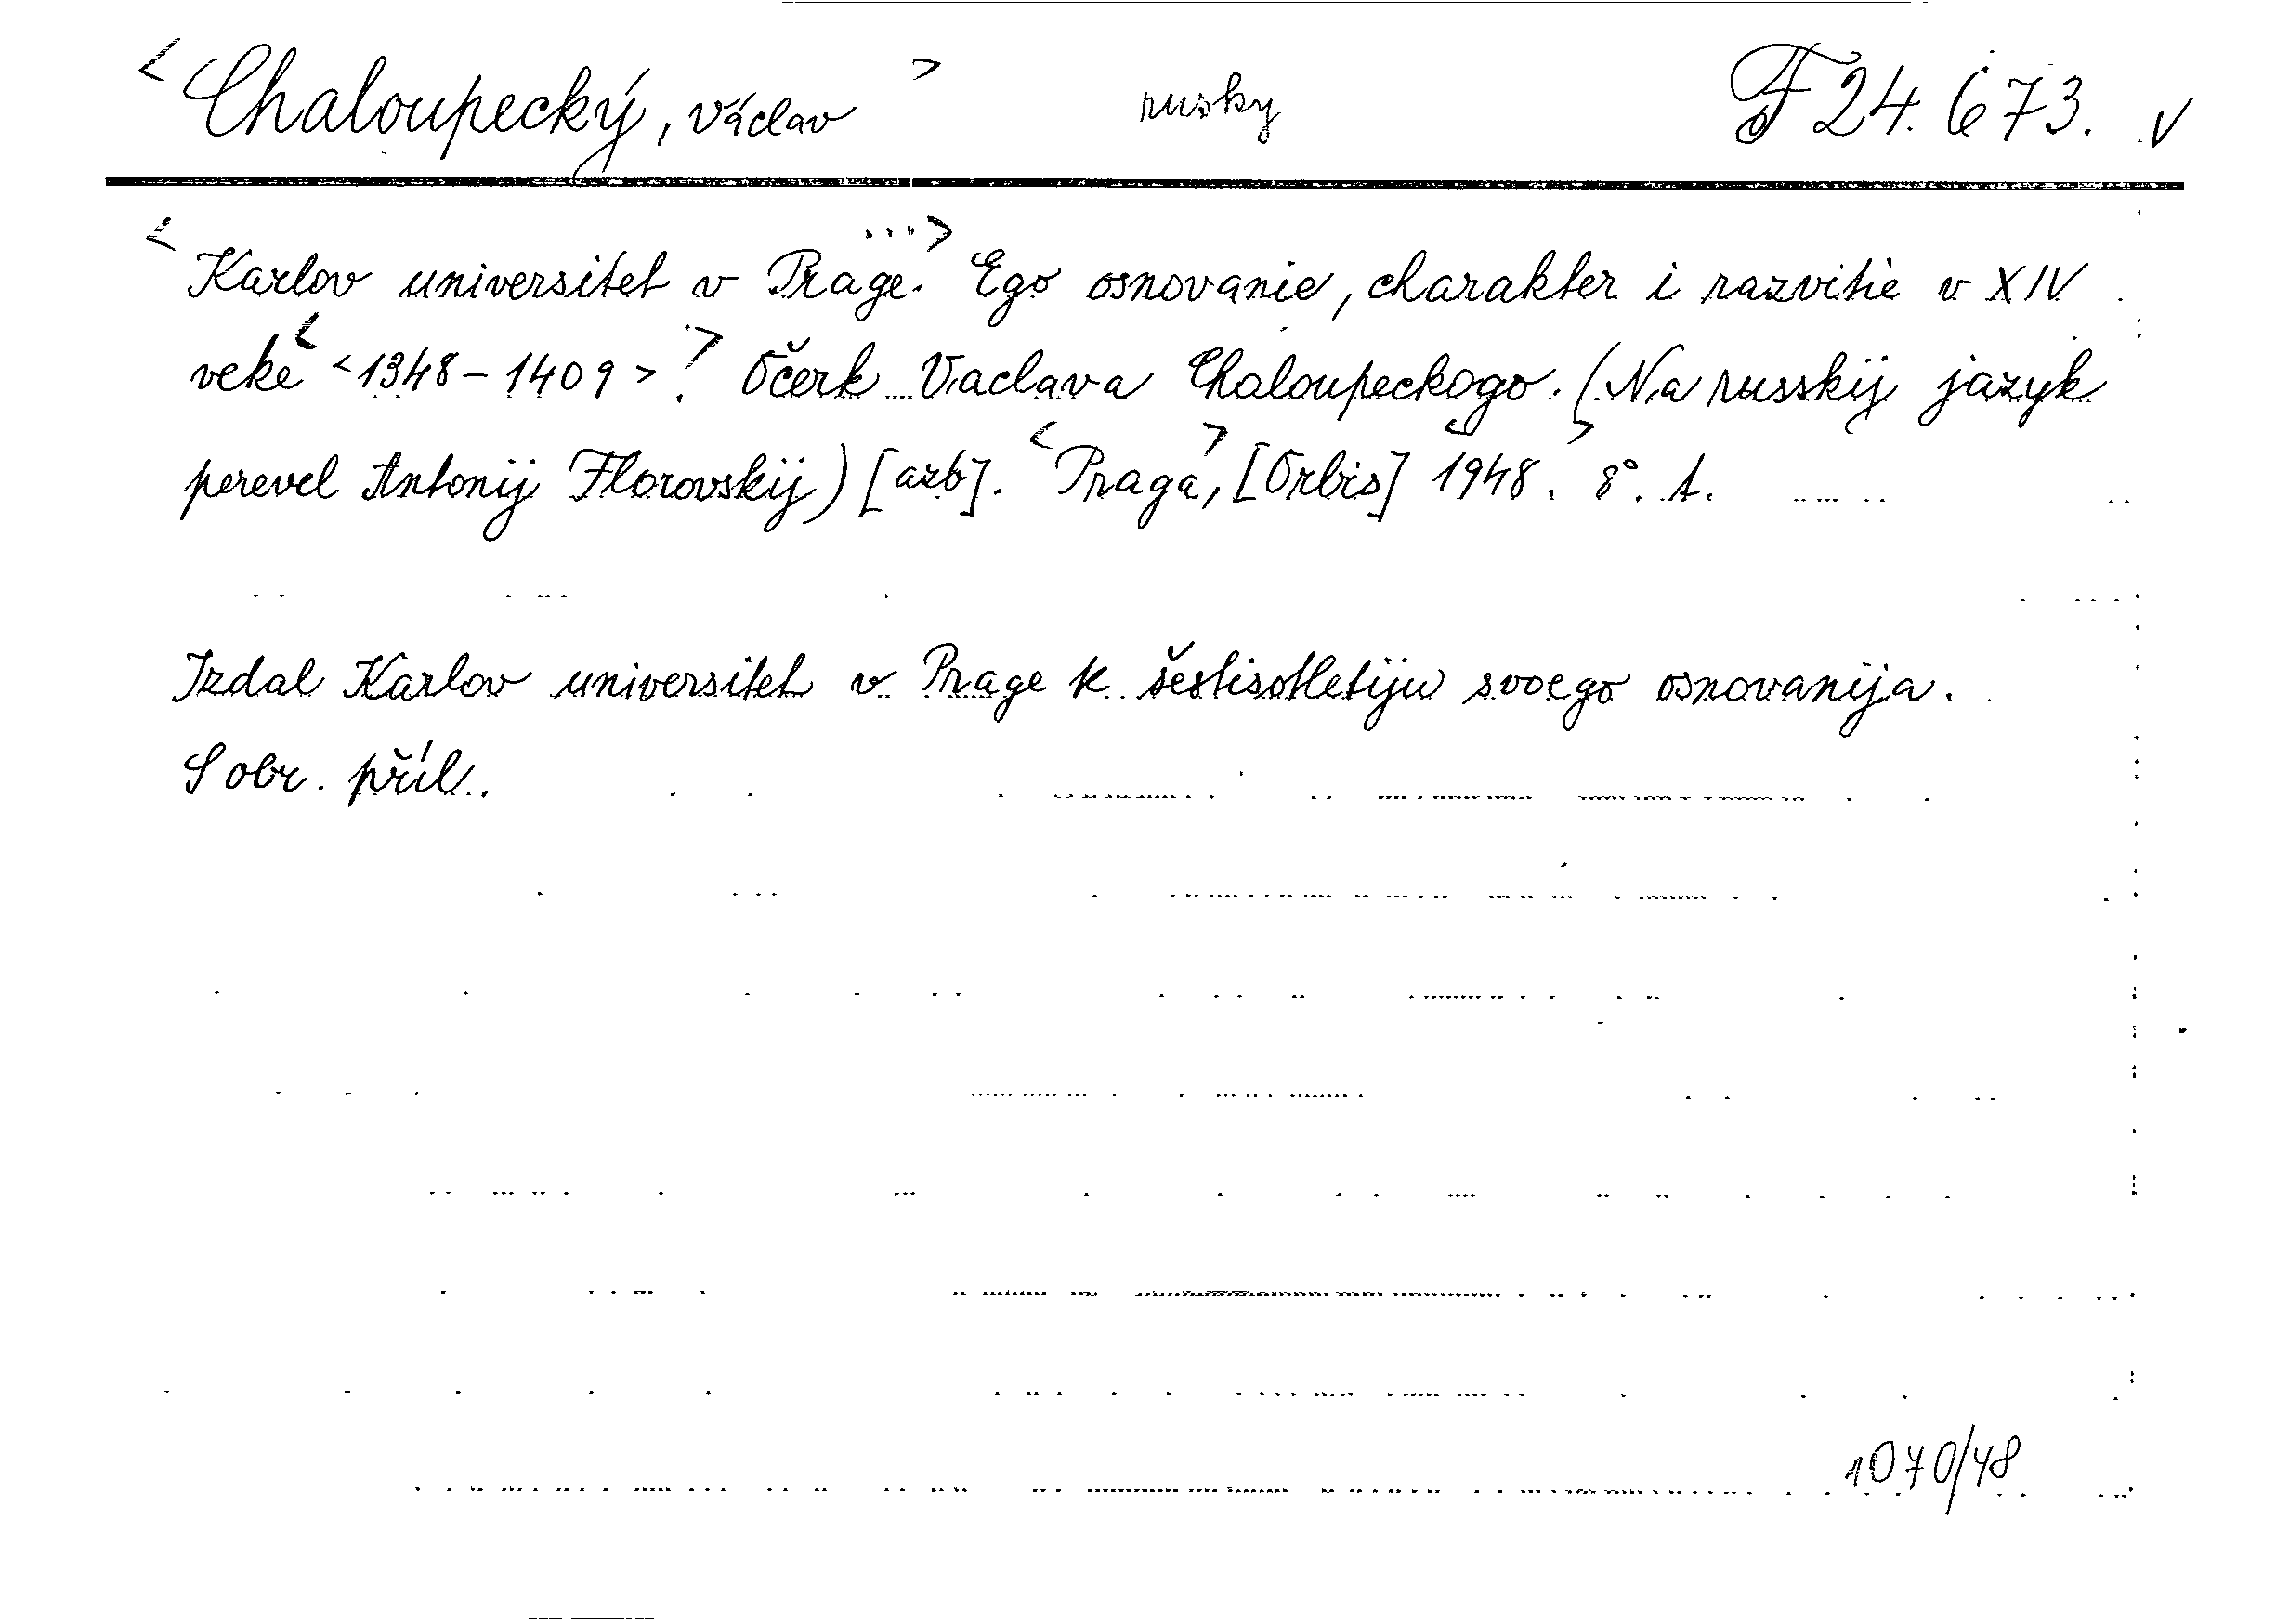 <Chaloupecký, Václav> rusky F 24.673. v
<Karlov universitet v Prage. ...> Ego osnovanie, charakter i razvitie v XIV
veke < <1348-1409> >. Očerk Vaclava Chaloupeckogo. (Na russkij jazyk
perevel Antonij Florovskij) [azb]. <Praga>, [Orbis] <1948>. 8°. A.
Izdal Karlov universitet v Prage k šestisotletiju svoego osnovanija.
S obr. příl.
1070/48